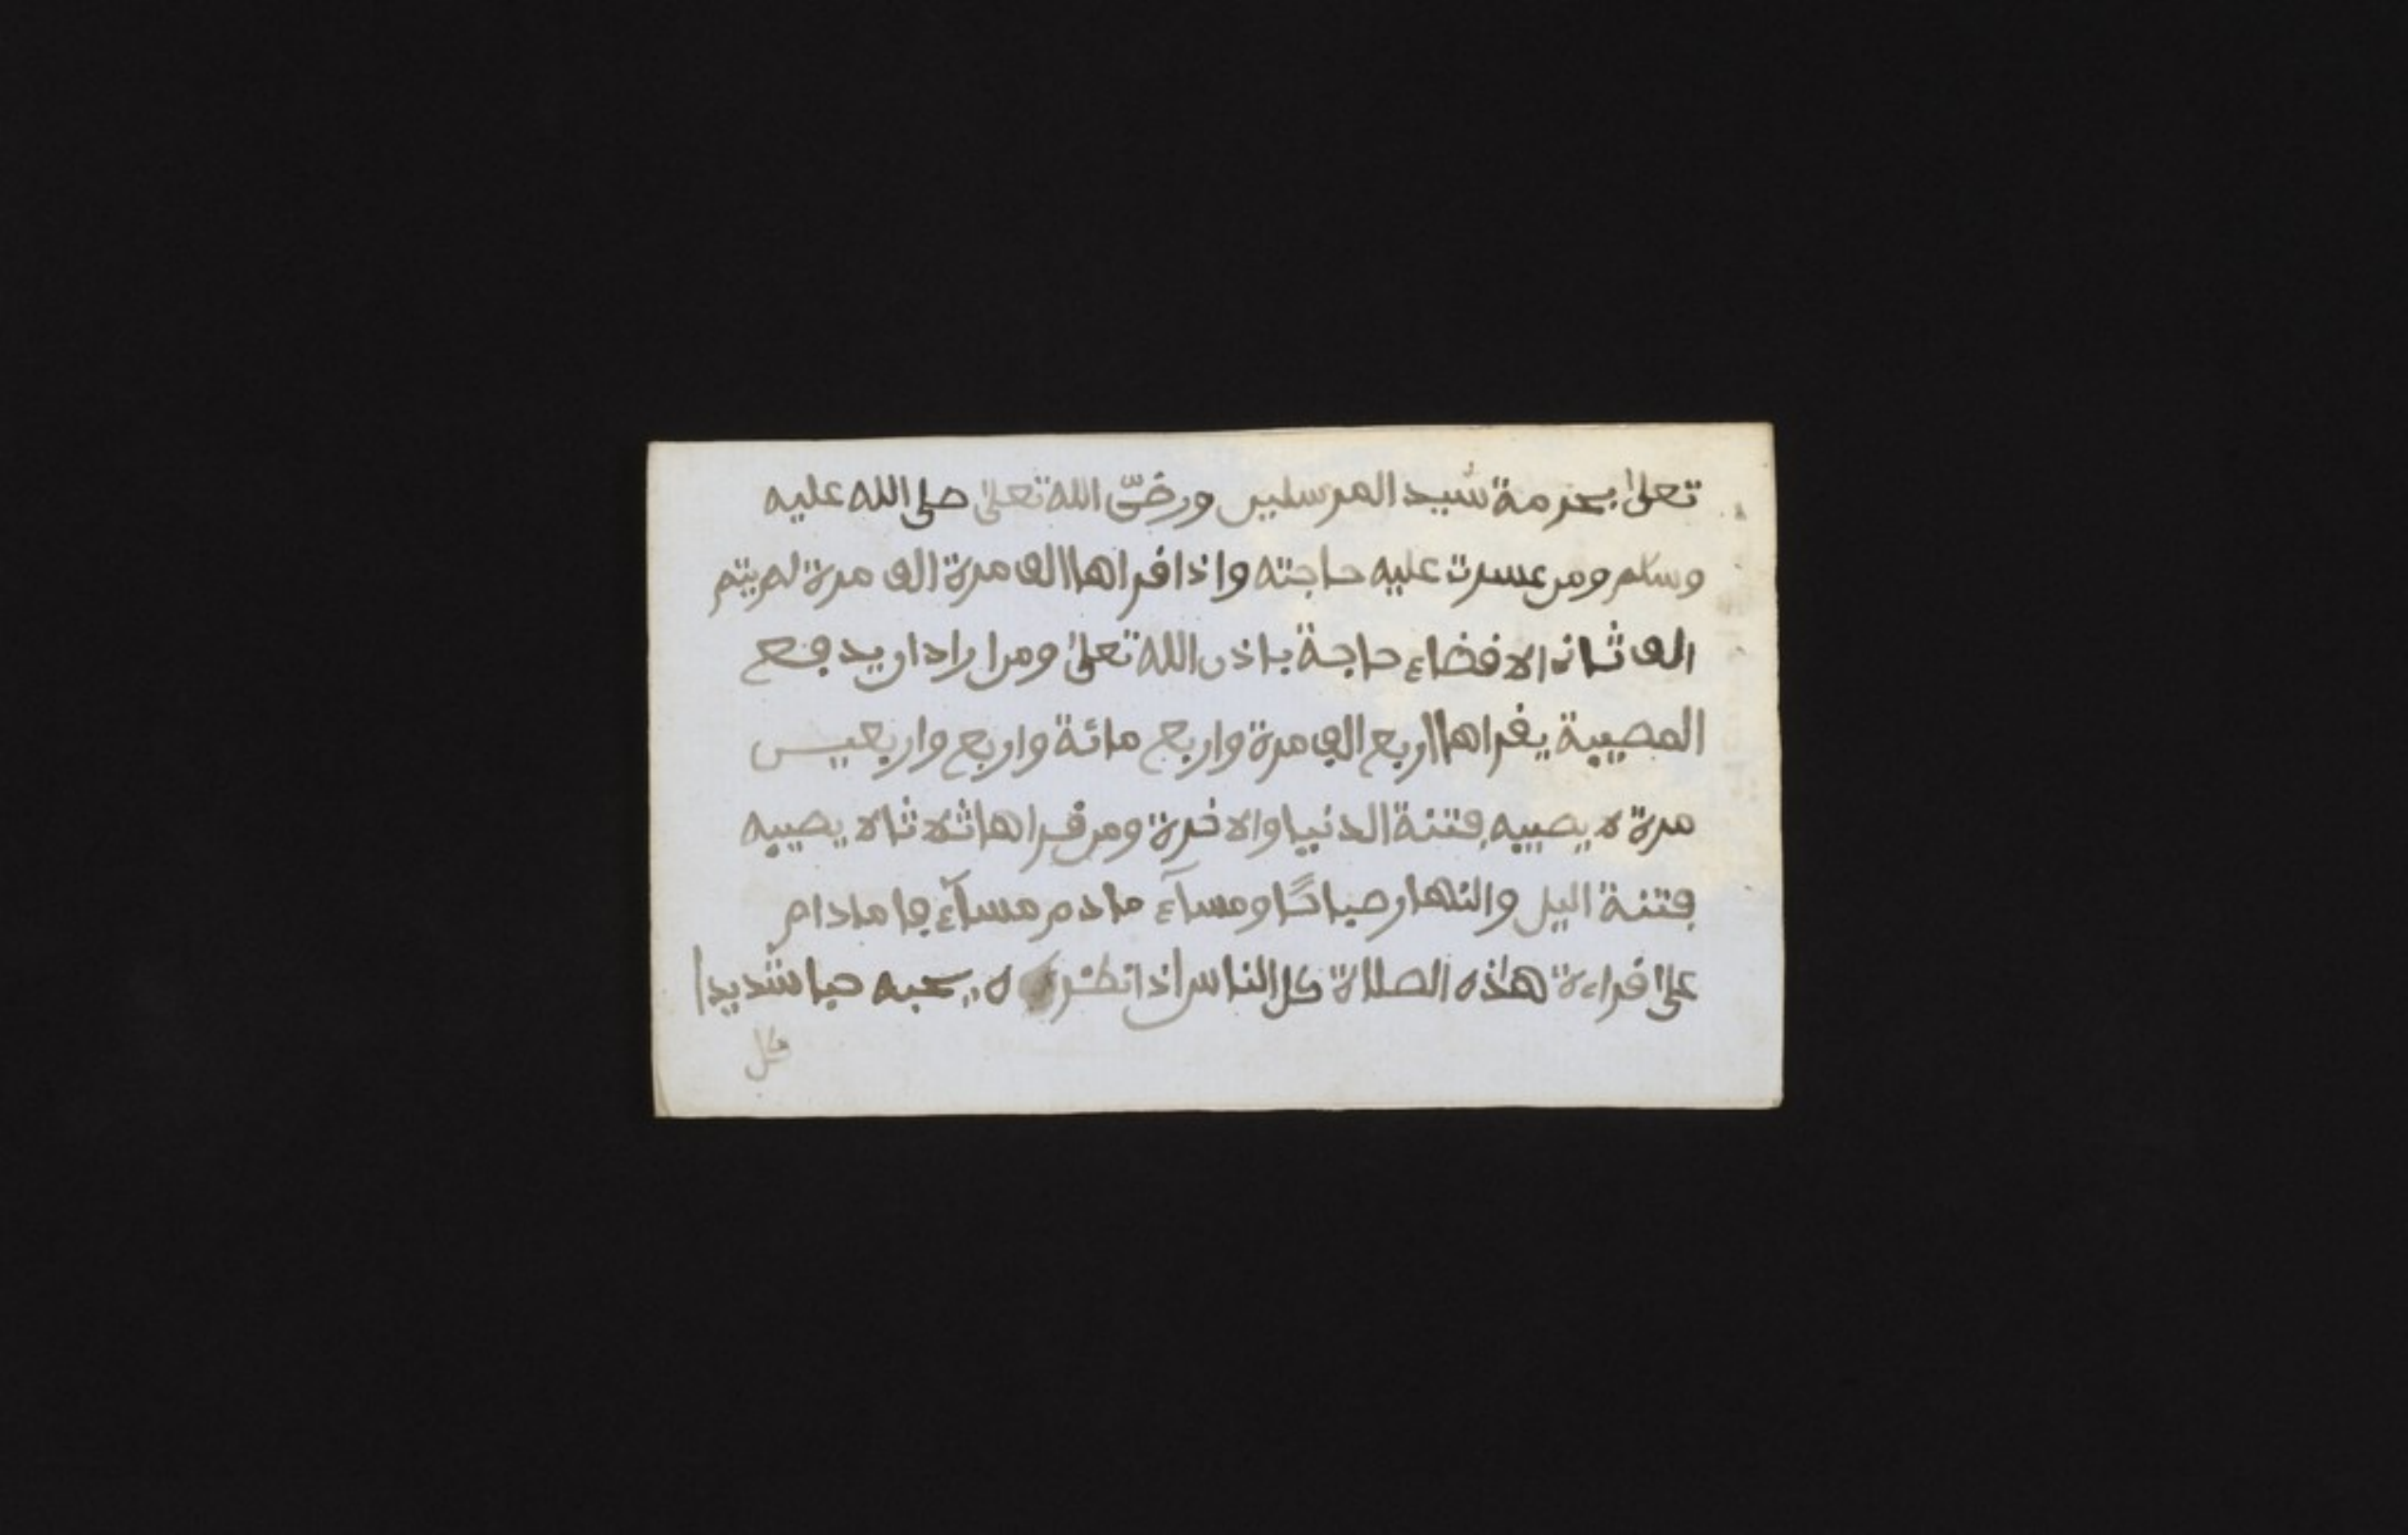 تعلىٰ بحرمة سيد المرسلين ورضىّ الله تعلىٰ صلى الله عليه
وسلم ومن عسرت عليه حاجته واذا قراها الف مرة الف مرة لم يتم
الف ثانه الا قضاء حاجة باذن الله تعلىٰ ومن اراد ان يدفع
المصيبة يقراها اربع الف مرة واربع مائة واربع واربعين
مرة لا يصيبه فتنة الدنيا والاخرة ومن قراها ثلاثا لا يصيبه
فتنة اليل والنهار صباحًا ومسآء مادم مسآء ما مادام
على قراءة هٰذه الصلاة كل الناس اذا نظر يحبه حبا شديدا
كل